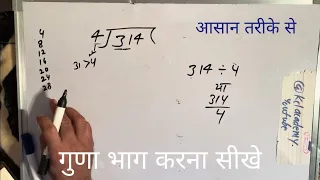 आसान तरीके से
4
8
12
16
20
24
28
4 ) 314 (
31 > 4
314 ÷ 4
या
314
4
@kclacademy
Youtube
गुणा भाग करना सीखे